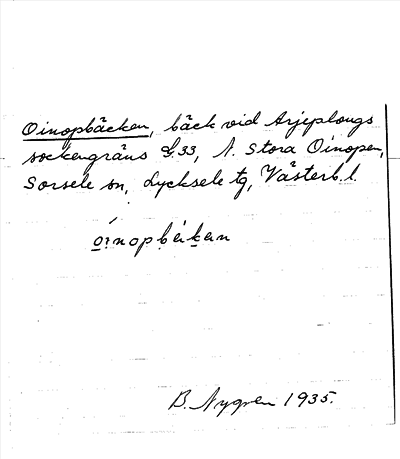 Oinopbäcken, bäck vid Arjeplougs
sockengräns G.33, N. Stora Oinopen,
Sorsele sn, Lycksele tg, Västerb. l.
B. Nygren 1935.